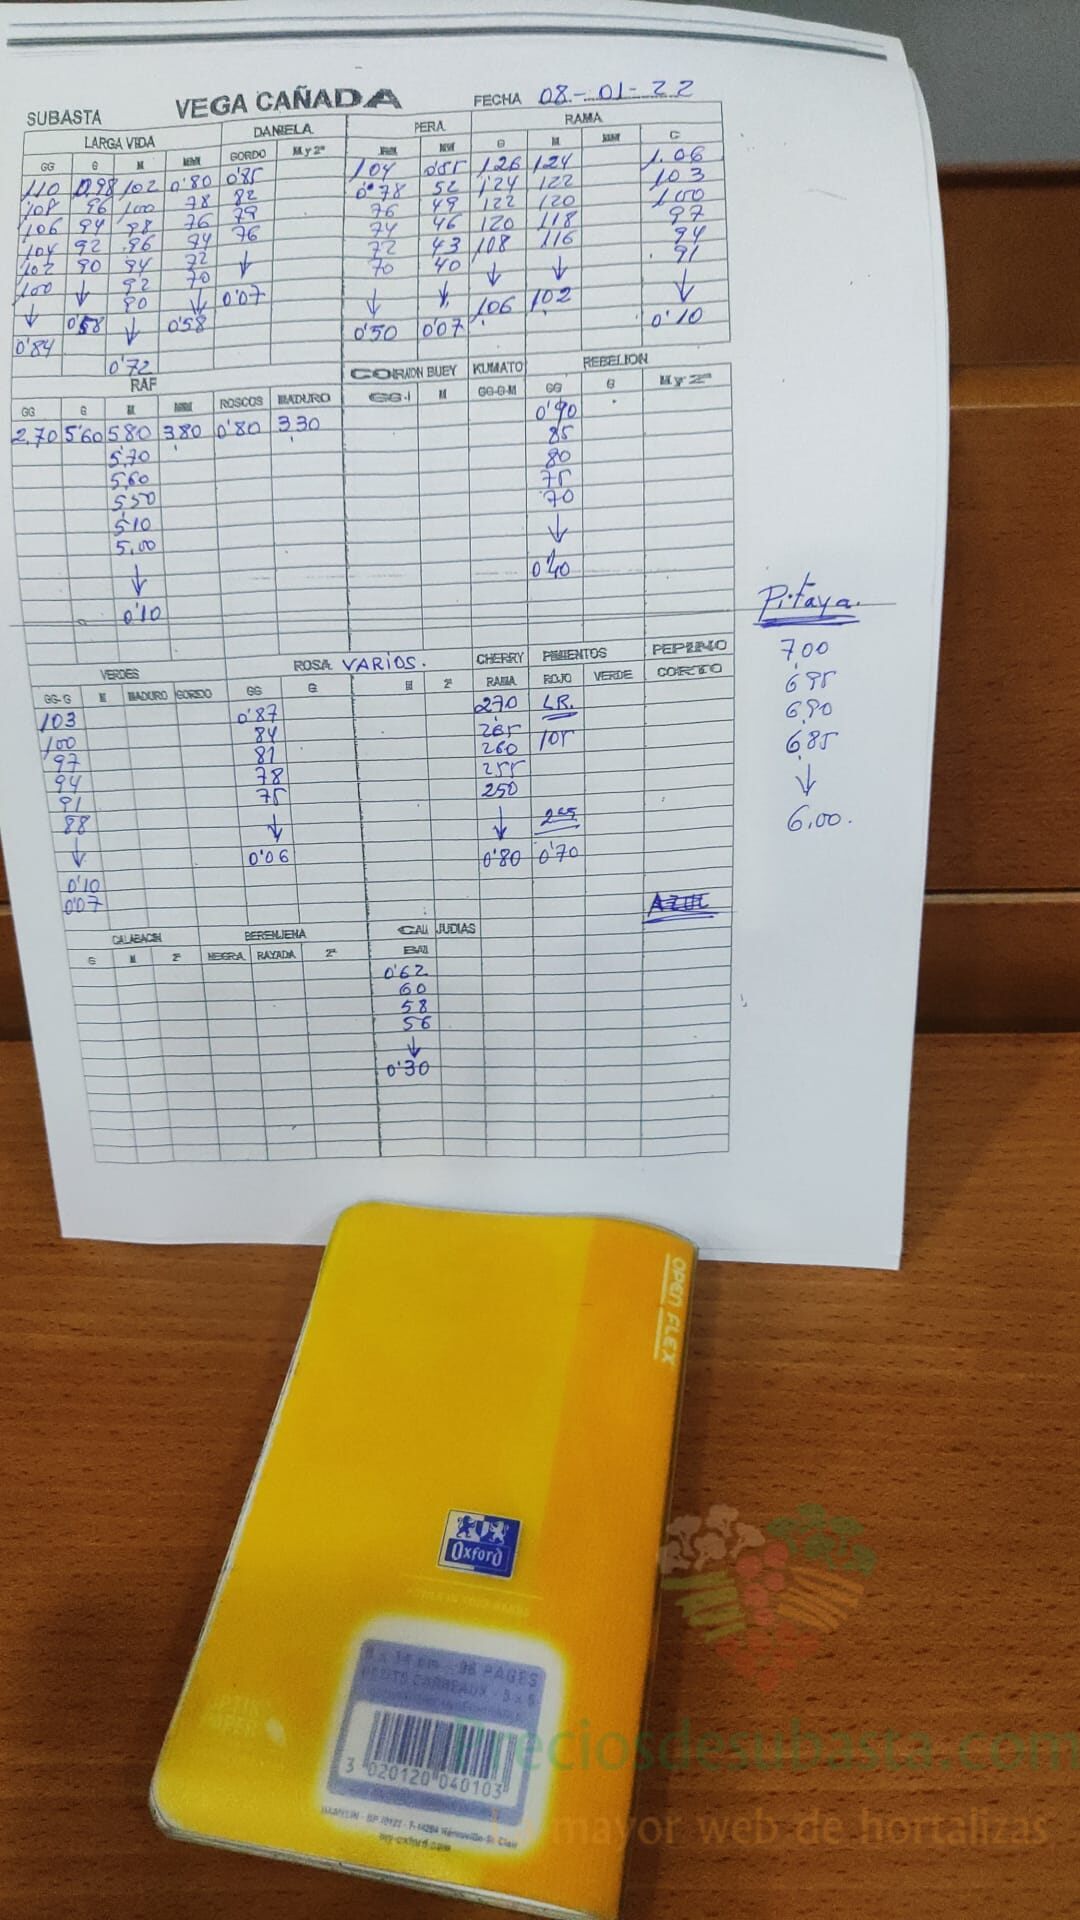 SUBASTA VEGA CAÑADA FECHA 08-01-22
LARGA VIDA DANIELA PERA RAMA
GG G M MMM GORDO M y 2ª MMM G M MMM C
110 0,98 102 0'80 0'85 104 0'55 1,26 124 1.06
108 96 100 78 82 0'78 52 124 122 103
106 94 98 76 79 76 49 122 120 100
104 92 96 74 76 74 46 120 118 97
102 90 94 72 ↓ 72 43 108 116 94
100 ↓ 92 70 0'07 70 40 ↓ ↓ 91
↓ 0'58 90 ↓ ↓ ↓ 106 102 ↓
0'84 ↓ 0'58 0'50 0'07 0'10
0'72
RAF CORAZON BUEY KUMATO REBELION
GG G M MMM ROSCOS MADURO GG-G M GG-G-M GG G M y 2ª
2,70 5'60 5'80 3'80 0'80 3'30 0'90
5,70 85
5,60 80
5'50 75
5'10 70
5,00 ↓
↓ 0'40
0'10
VERDES ROSA VARIOS. CHERRY PIMIENTOS PEPINO
GG-G M MADURO GORDO GG G M 2ª RAMA ROJO VERDE CORTO
103 0'87 270 LR.
100 84 265 105
97 81 260
94 78 255
91 75 250
88 ↓ ↓ 2as
↓ 0'06 0'80 0'70
0'10
0'07
AZUL
CALABACIN BERENJENA CALA JUDIAS
G M 2ª NEGRA RAYADA 2ª
0'62
60
58
56
↓
0'30
Pitaya.
7,00
6,95
6,90
6,85
↓
6,00.
OPEN FLEX
Oxford
96 PAGES
PETITS CARREAUX - 5 x 5
3 020120 040103
my-oxford.com
Preciosdesubasta.com
La mayor web de hortalizas